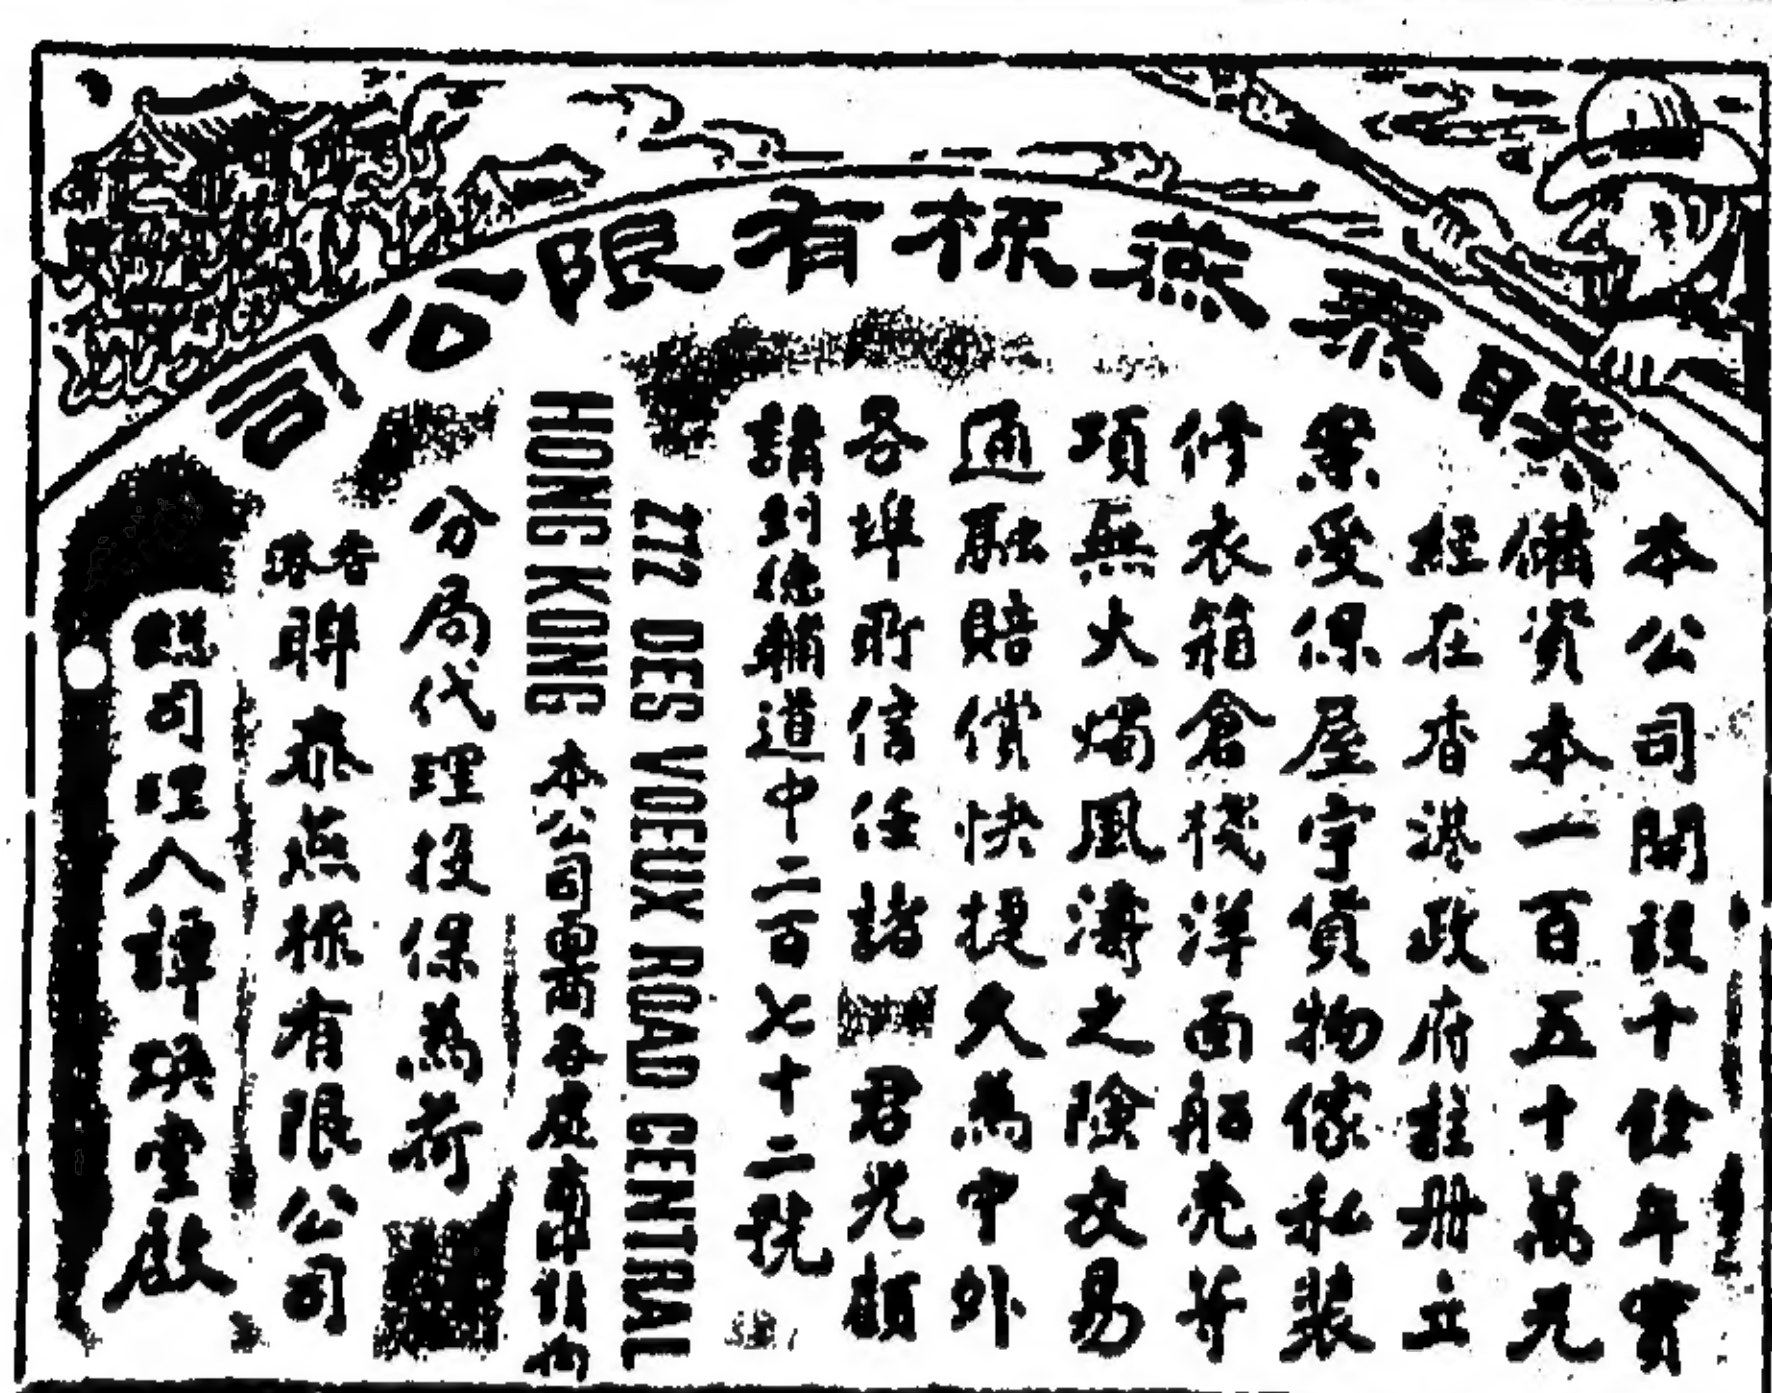 聯泰燕梳有限公司
本公司開設十餘年實
備資本一百五十萬元
經在香港政府註冊立
案受保屋宇貨物傢私裝
修衣箱倉棧洋面船壳等
項無火燭風濤之險交易
通融賠償快捷久為中外
各埠所信任諸君光顧
請到德輔道中二百七十二號
272 DES VOEUX ROAD CENTRAL
HONG KONG
本公司 各 
分局代理投保為荷
香港聯泰燕梳有限公司
總司理人譚煥堂啟